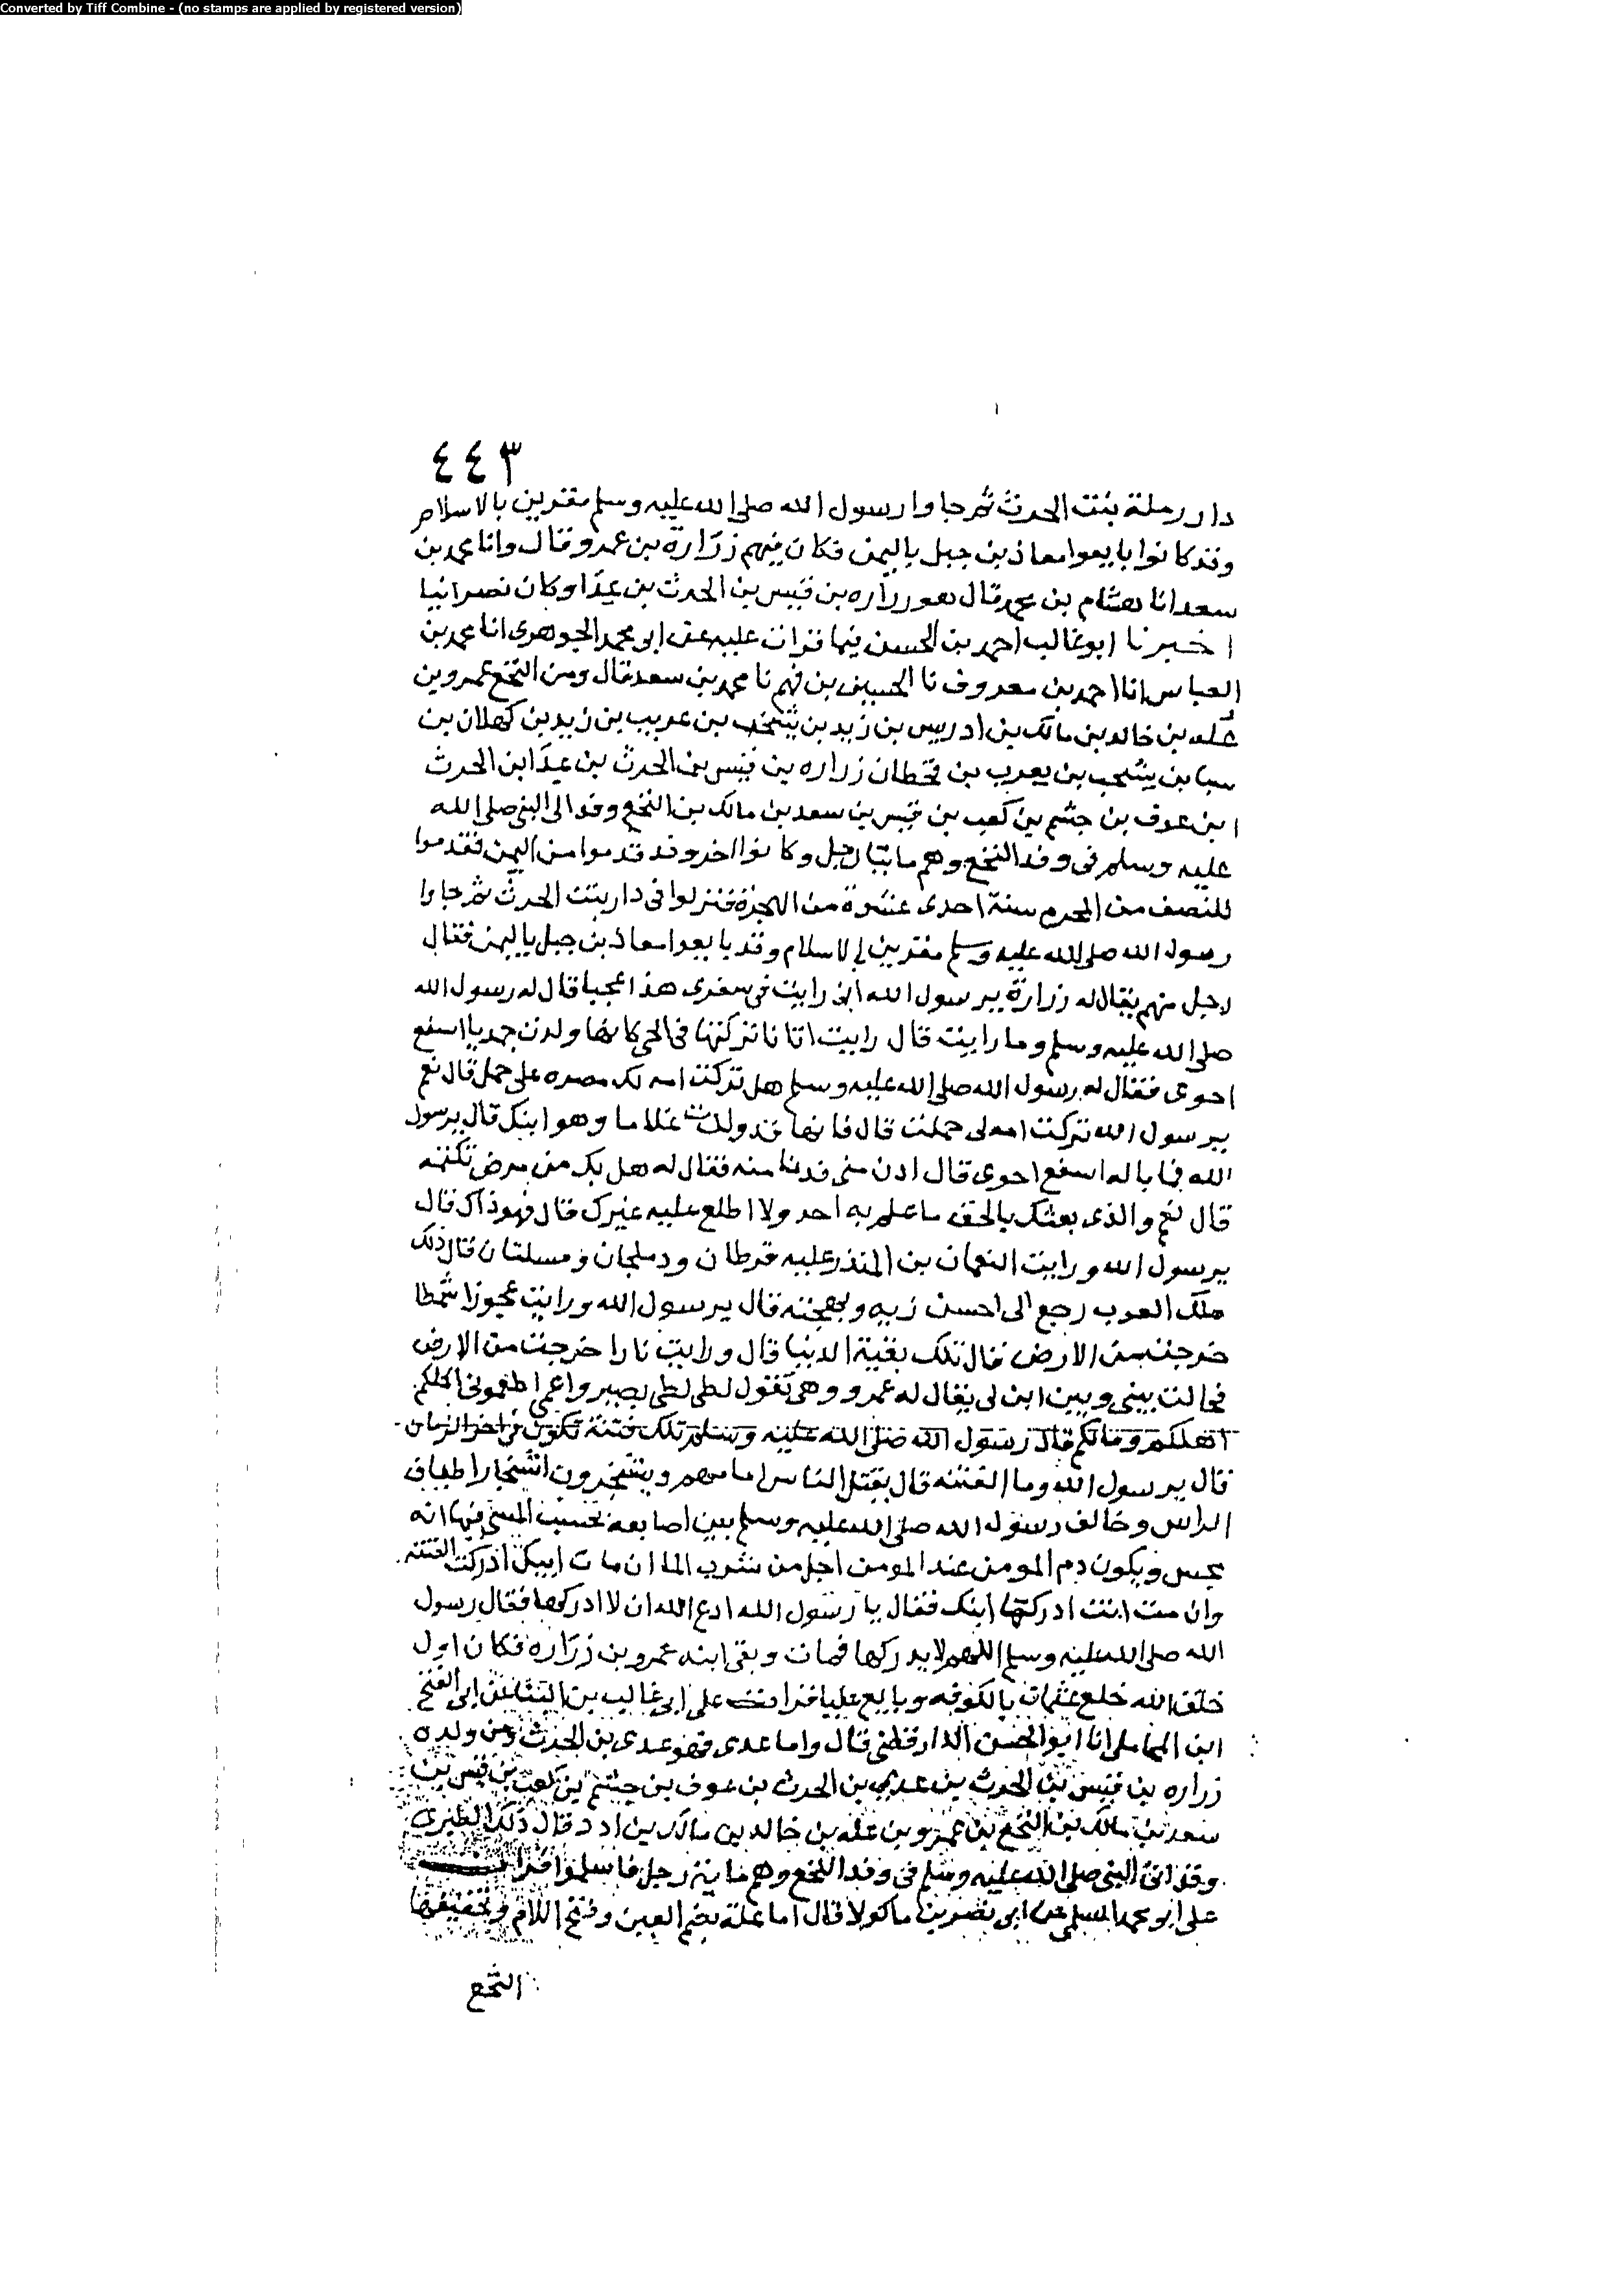 Converted by Tiff Combine - (no stamps are applied by registered version)
٤٤٣
دار رملة بنت الحرث ثم جاوا رسول الله صلى الله عليه وسلم مقرين بالاسلام
وقد كانوا بايعوا معاذ بن جبل باليمن فكان فيهم زرارة بن عمرو قال وانا محمد بن
سعد انا هشام بن محمد قال هو زراره بن قيس بن الحرث بن عدا وكان نصرانيا
اخبرنا ابو غالب احمد بن الحسن فيما قرات عليه عن ابى محمد الجوهرى انا محمد بن
العباس انا احمد بن معروف نا الحسين بن فهم نا محمد بن سعد قال ومن النخع عمرو بن
عله بن خالد بن مالك بن ادد بن زيد بن يشجب بن عريب بن زيد بن كهلان بن
سبا بن يشجب بن يعرب بن قحطان زراره بن قيس بن الحرث بن عدا بن الحرث
ابن عوف بن جشم بن كعب بن قيس بن سعد بن مالك بن النخع وفد الى النبى صلى الله
عليه وسلم فى وفد النخع وهم مايتا رجل وكانوا اخر وفد قدموا من اليمن فقدموا
للنصف من المحرم سنة احدى عشرة من الهجرة فنزلوا فى دار بنت الحرث ثم جاوا
رسول الله صلى الله عليه وسلم مقرين بالاسلام وقد بايعوا معاذ بن جبل باليمن فقال
رجل منهم يقال له زرارة يرسول الله انى رايت فى سفرى هذا عجبا قال له رسول الله
صلى الله عليه وسلم وما رايت قال رايت اتانا تركتها فى الحى كانها ولدت جديا اسفع
احوى فقال له رسول الله صلى الله عليه وسلم هل تركت امه لك مصره على حمل قال نعم
يرسول الله تركت امه لى حملت قال فانها قد ولدت غلاما وهو ابنك قال يرسول
الله فما باله اسفع احوى قال ادن منى فدنا منه فقال له هل بك من برص تكتمه
قال نعم والذى بعثك بالحق ما علم به احد ولا اطلع عليه غيرك قال فهو ذاك قال
يرسول الله ورايت النعمان بن المنذر عليه قرطان ودملجان ومسلتان قال ذلك
ملك العرب رجع الى احسن زيه وبهجته قال يرسول الله ورايت عجوزا شمطا
خرجت من الارض قال تلك بقية الدنيا قال ورايت نارا خرجت من الارض
فحالت بينى وبين ابن لى يقال له عمرو وهى تقول لظى لظى بصير واعمى اطعمونى اكلكم
اهلكم ومالكم قال رسول الله صلى الله عليه وسلم تلك فتنة تكون فى اخر الزمان
قال يرسول الله وما الفتنه قال يقتل الناس امامهم ويشتجرون اشتجار اطباق
الراس وخالف رسول الله صلى الله عليه وسلم بين اصابعه يحسب المسى فيها انه
محسن ويكون دم المومن عند المومن احل من شرب الما ان مات ابنك ادركت الفتنه
وان مت انت ادركتها ابنك فقال يا رسول الله ادع الله ان لا ادركها فقال رسول
الله صلى الله عليه وسلم اللهم لا يدركها فمات وبقى ابنه عمرو بن زراره فكان اول
خلق الله خلع عثمان بالكوفه وبايع عليا قرات على ابى غالب بن البنا عن ابى الفتح
ابن المحاملى انا ابو الحسن الدارقطنى قال واما عدى فهو عدى بن الحرث ومن ولده
زراره بن قيس بن الحرث بن عدى بن الحرث بن عوف بن جشم بن كعب بن قيس بن
سعد بن مالك بن النخع بن عمرو بن عله بن خالد بن مالك بن ادد قال ذلك الطبرى
وقد اتى النبى صلى الله عليه وسلم فى وفد النخع وهم مايتا رجل فاسلموا قرات
على ابو محمد السلمى عن ابى نصر بن ماكولا قال اما علة بضم العين وفتح اللام وتخفيفها
النخع